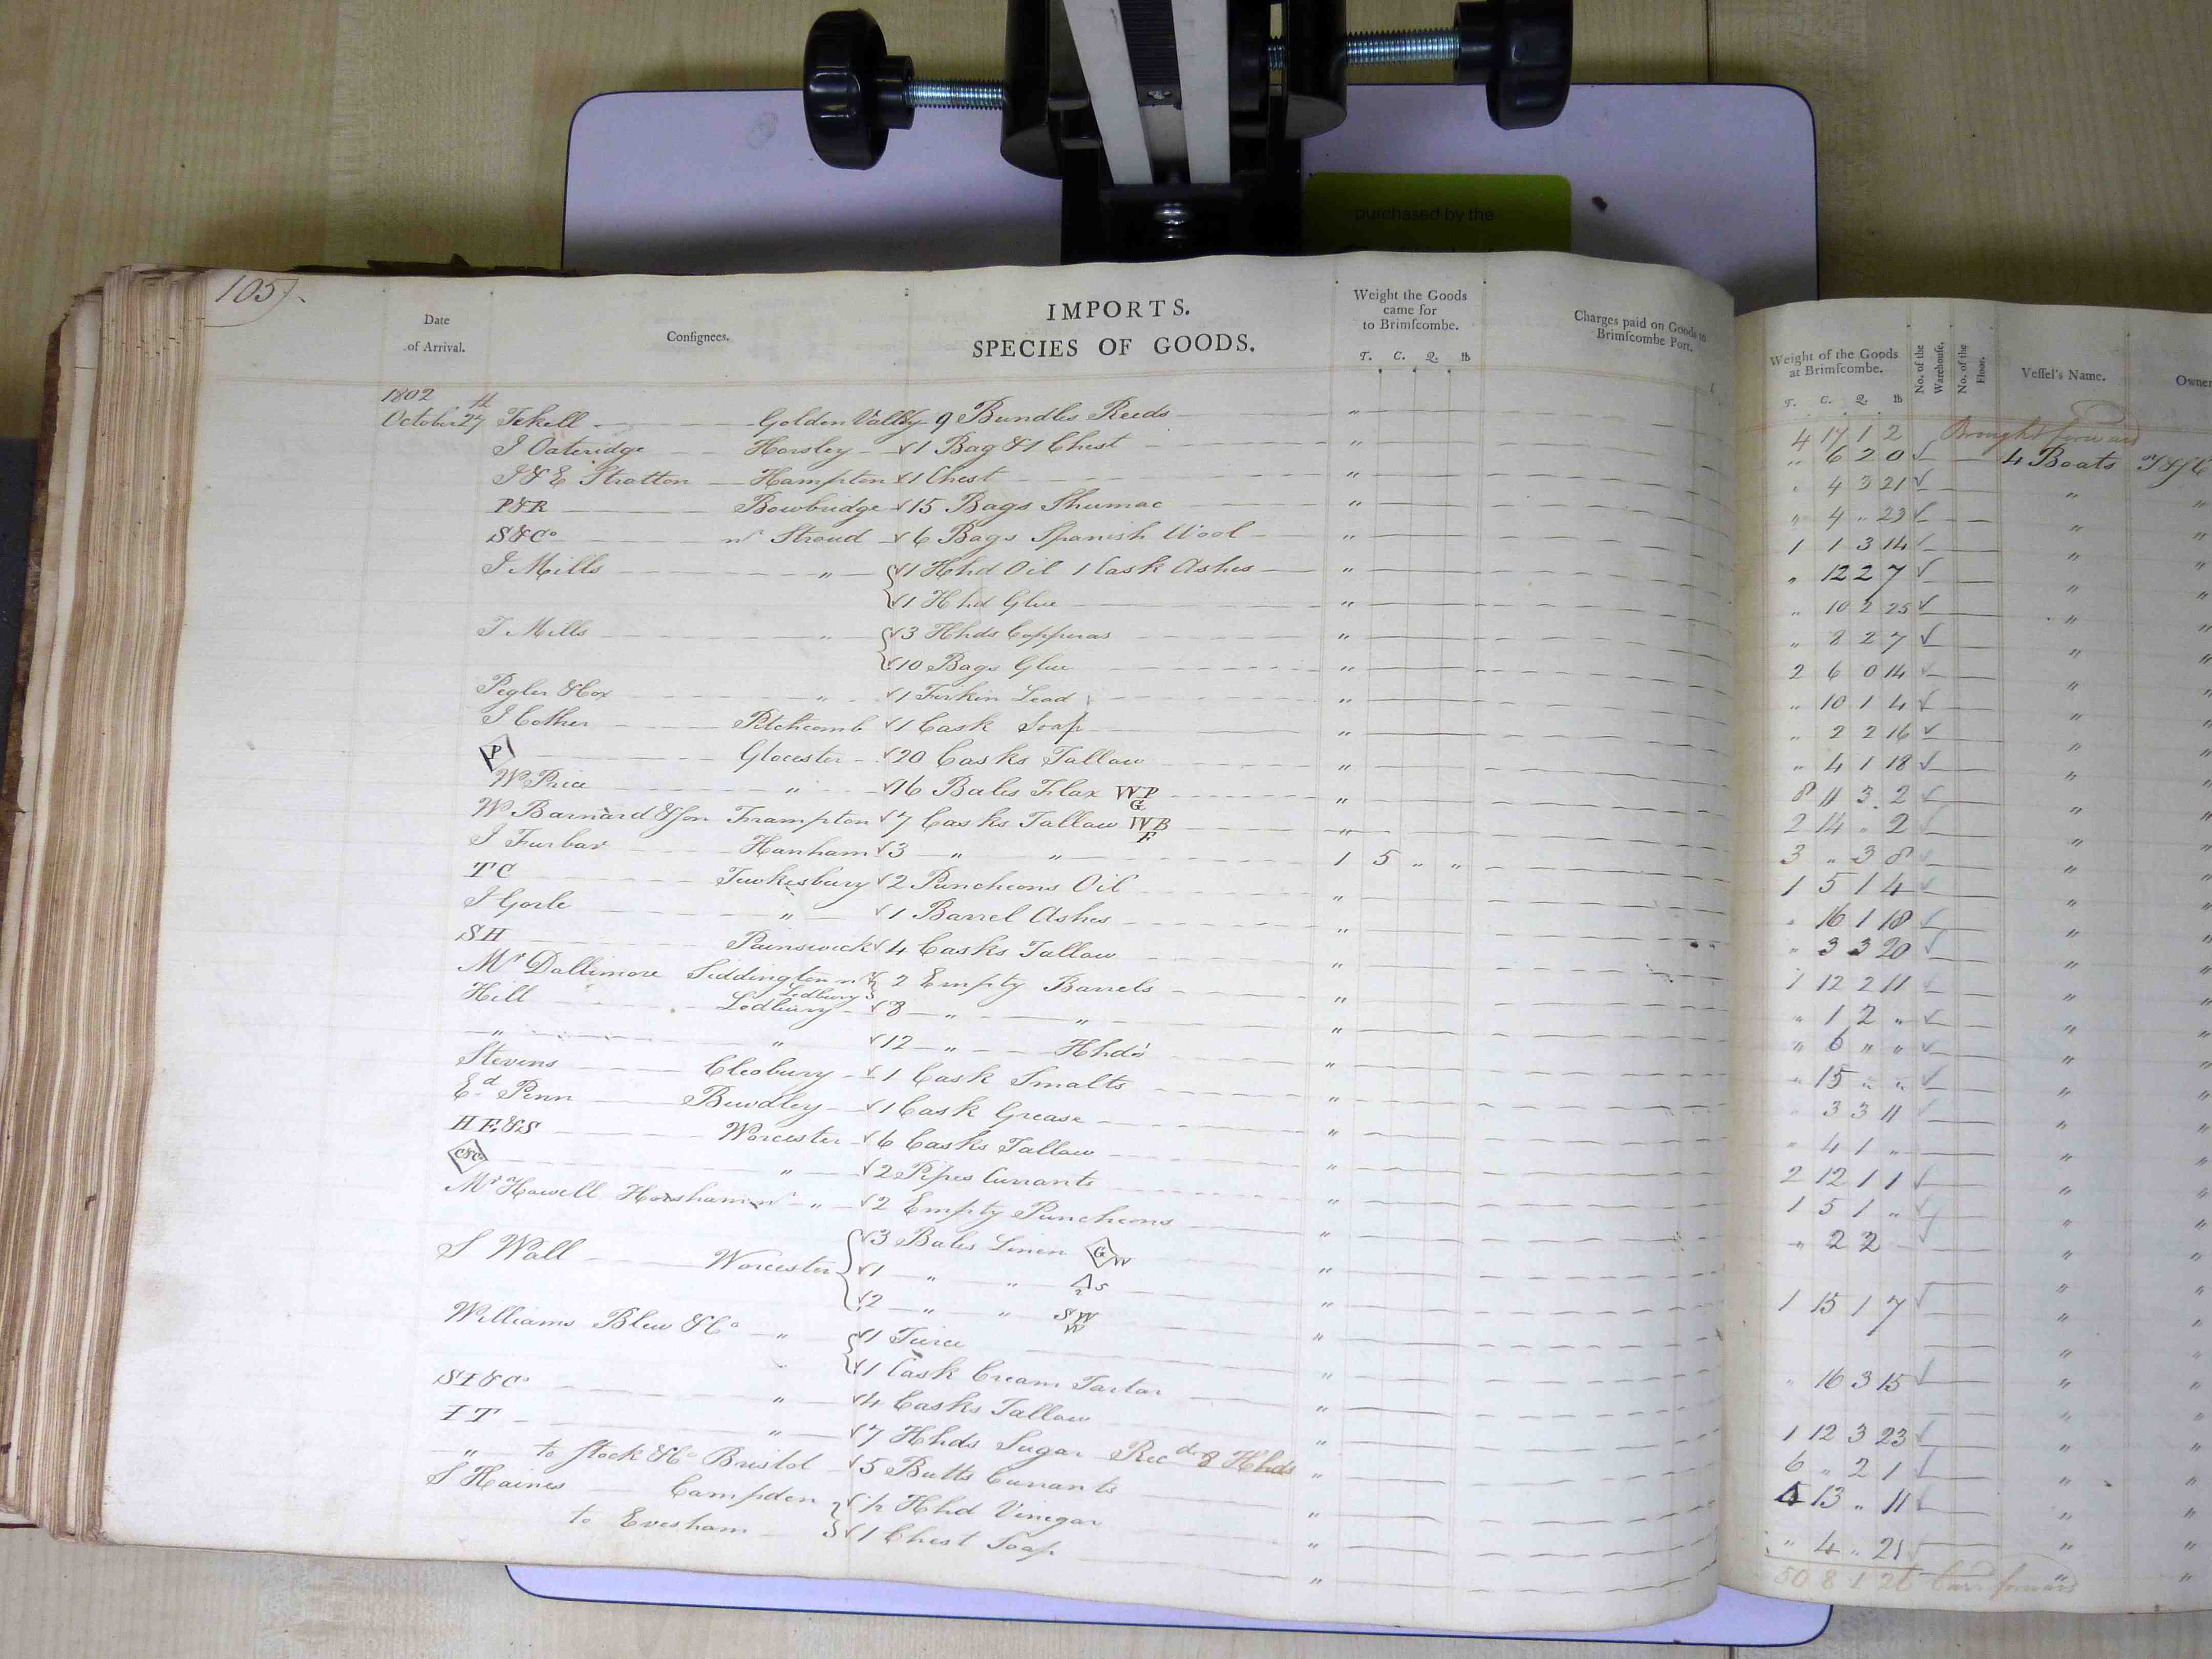 purchased by the
105
IMPORTS.
Date of Arrival. Consignees. SPECIES OF GOODS. Weight the Goods came for to Brimscombe. T. C. Q. lb Charges paid on Goods to Brimscombe Port. Weight of the Goods at Brimscombe. T. C. Q. lb No. of the Warehouse. No. of the Floor. Vessel's Name. Owner
1802
4 17 1 2 Brought forward
October 27th Tekell Golden Vally 9 Bundles Reeds " " 6 2 0 4 Boats
I Oateridge Horsley 1 Bag & 1 Chest " " 4 3 21 "
I & E Stratton Hampton 1 Chest " " 4 " 23 "
P&R Bowbridge 15 Bags Shumac " 1 1 3 14 "
S&Co nr Stroud 6 Bags Spanish Wool " " 12 2 7 "
I Mills " 1 Hhd Oil 1 Cask Ashes " " 10 2 25 "
1 Hhd Glue " " 8 2 7 "
T Mills " 3 Hhds Copperas " 2 6 0 14 "
10 Bags Glue " " 10 1 4 "
Pegler & Cox " 1 Firkin Lead " " 2 2 16 "
I Cother Pitchcomb 1 Cask Soap " " 4 1 18 "
P Glocester 20 Casks Tallow " 8 11 3 2 "
W Price " 16 Bales Flax WP G " 2 14 " 2 "
W Barnard & Son Frampton 7 Casks Tallow WB F " 3 " 3 8 "
I Furbar Hanham 3 " " 1 5 " " 1 5 1 4 "
TC Tewkesbury 2 Puncheons Oil " " 16 1 18 "
I Gorle " 1 Barrel Ashes " " 3 3 20 "
SH Painswick 4 Casks Tallow " 1 12 2 11 "
Mr Dallimore Siddington nr Ledbury 2 Empty Barrels " " 1 2 " "
Hill Ledbury 8 " " " " 6 " " "
" " 12 " Hhds " " 15 " " "
Stevens Cleobury 1 Cask Smalts " " 3 3 11 "
Ed Penn Bewdley 1 Cask Grease " " 4 1 " "
HE&S Worcester 6 Casks Tallow " 2 12 1 1 "
C&C " 2 Pipes Currants " 1 5 1 " "
Mr Howell Horsham nr " 2 Empty Puncheons " " 2 2 "
S Wall Worcester 3 Bales Linen G W "
1 " " S " 1 15 1 7 "
2 " " SW W "
Williams Blew & Co " 1 Tierce "
1 Cask Cream Tartar " " 16 3 15 "
SI&Co " 4 Casks Tallow " 1 12 3 23 "
IT " 7 Hhds Sugar Recd 8 Hhds " 6 " 2 1 "
" to Stock & Co Bristol 5 Butts Currants " 4 13 " 11 "
S Haines Campden 1/2 Hhd Vinegar "
to Evesham 1 Chest Soap " " 4 " 21 "
50 8 1 26 Carr forward